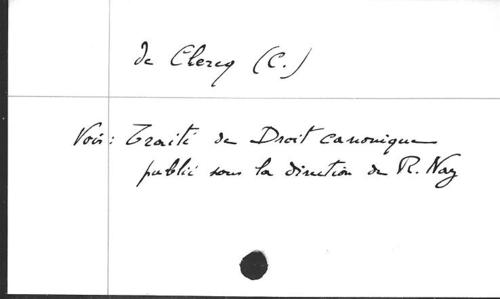 de Clercq (C.)
Voir : Traité de Droit canonique
publié sous la direction de R. Naz